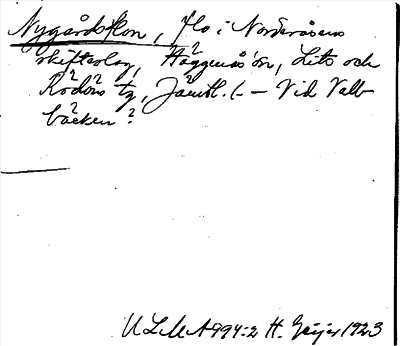 Nygårdsflon, flo i Norderåsens
skifteslag, Häggenås sn, Lits och
Rödöns tg, Jämtl. (– Vid Vall-
bäcken?
ULMA 994:2 H. Geijer 1923